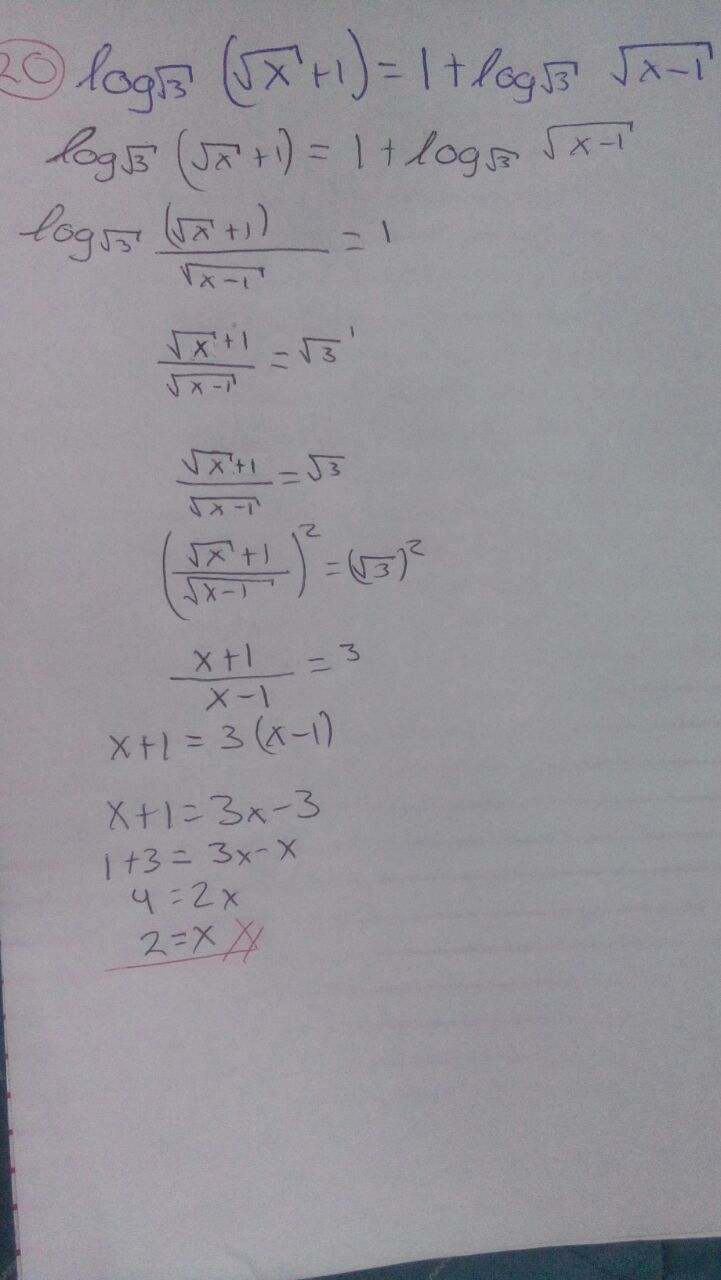 20) log√3 (√x +1) = 1 + log√3 √(x-1)
log√3 (√x +1) = 1 + log√3 √(x-1)
log√3 (√x +1)/√(x-1) = 1
(√x +1)/√(x-1) = √3¹
(√x +1)/√(x-1) = √3
((√x +1)/√(x-1))² = (√3)²
(x+1)/(x-1) = 3
x+1 = 3(x-1)
x+1 = 3x-3
1+3 = 3x-x
4 = 2x
2 = x